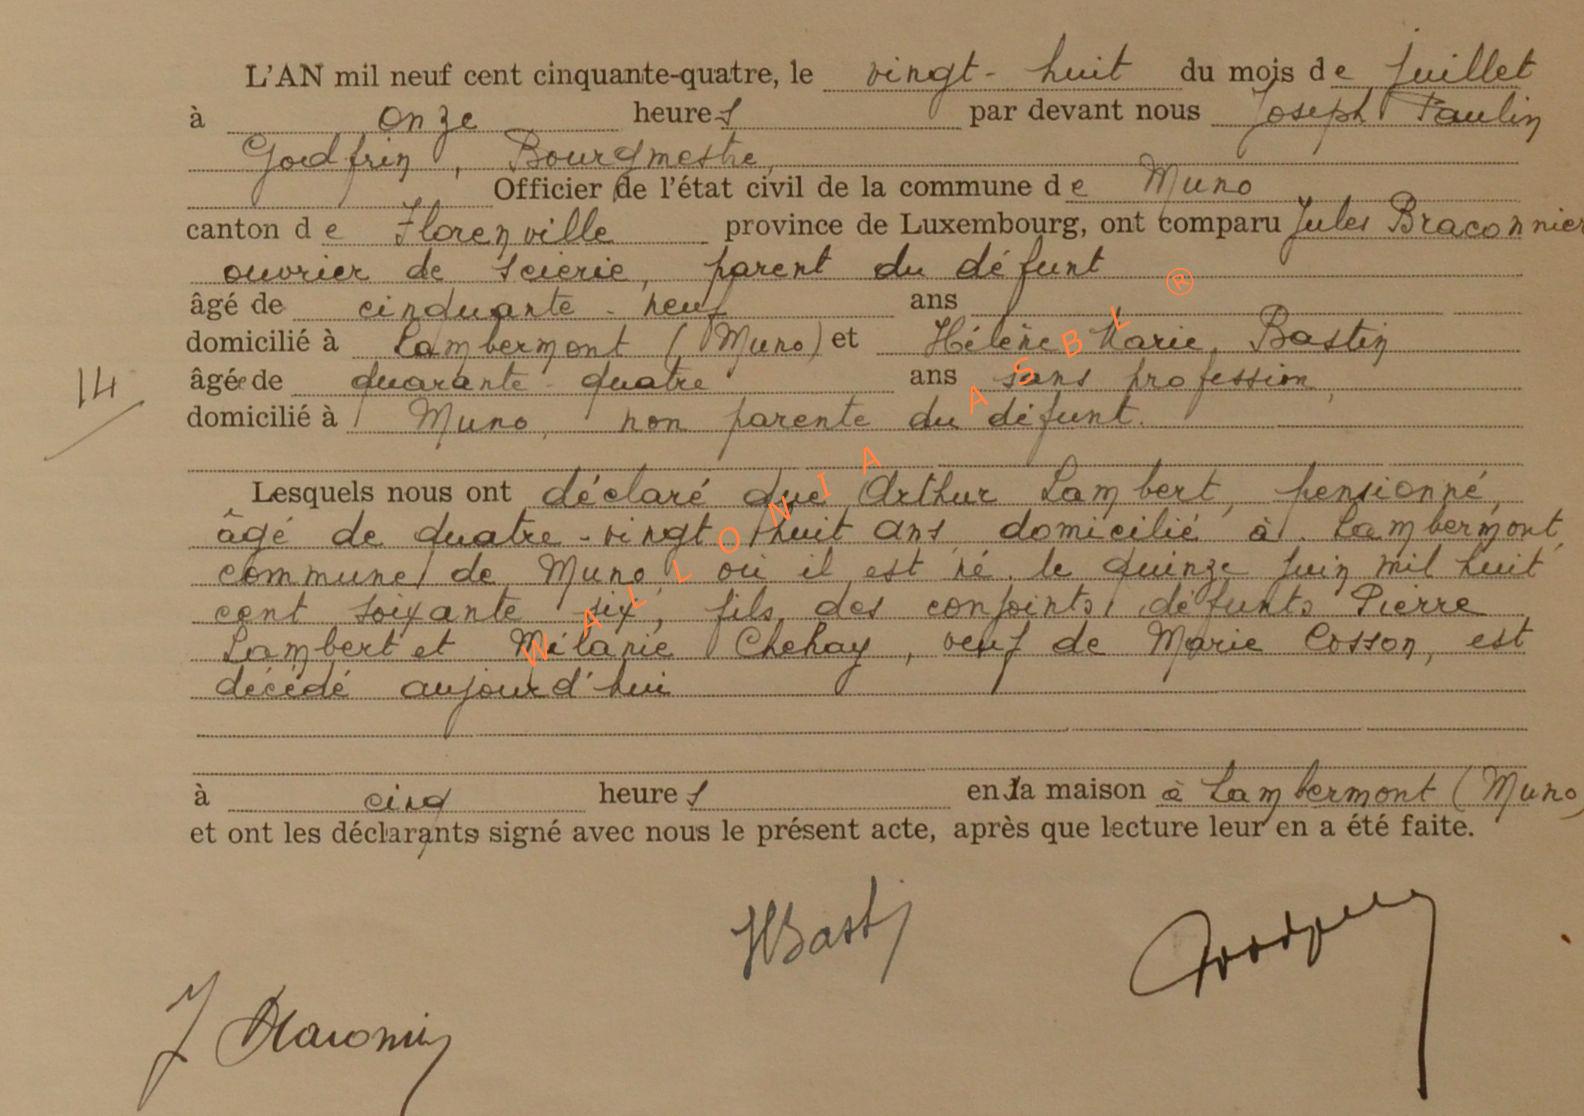 L'AN mil neuf cent cinquante-quatre, le vingt-huit du mois de juillet
à onze heures par devant nous Joseph Paulin
Godfrin, Bourgmestre,
Officier de l'état civil de la commune de Muno
canton de Florenville province de Luxembourg, ont comparu Jules Braconnier
ouvrier de scierie, parent du défunt
âgé de cinquante-neuf ans
domicilié à Lambermont (Muno) et Hélène Marie, Bastin
âgée de quarante-quatre ans sans profession,
14
domicilié à Muno, non parente du défunt.
Lesquels nous ont déclaré que Arthur Lambert, pensionné,
âgé de quatre-vingt huit ans, domicilié à Lambermont,
commune de Muno où il est né le quinze juin mil huit
cent soixante six, fils des conjoints défunts Pierre
Lambert et Mélanie Chehay, veuf de Marie Cosson, est
décédé aujourd'hui
à cinq heures en la maison à Lambermont (Muno)
et ont les déclarants signé avec nous le présent acte, après que lecture leur en a été faite.
HBastin
J Braconnier
WALLONIA ASBL ®